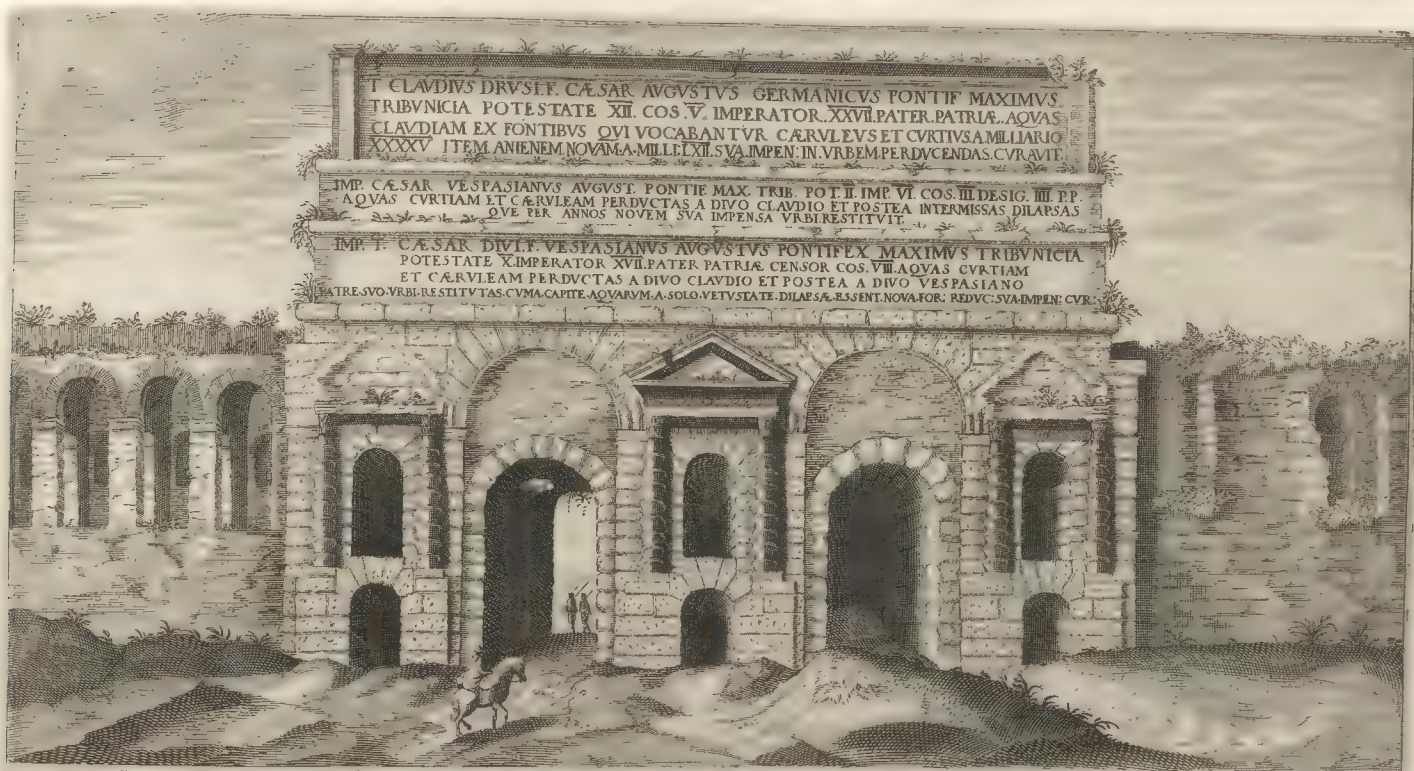 T CLAVDIVS DRVSI.F. CÆSAR AVGVSTVS GERMANICVS PONTIF MAXIMVS
TRIBVNICIA POTESTATE XII. COS. V. IMPERATOR.XXVII.PATER.PATRIÆ.AQVAS
CLAVDIAM EX FONTIBVS QVI VOCABANTVR CÆRVLEVS ET CVRTIVS.A.MILLIARIO
XXXXV ITEM.ANIENEM.NOVAM.A.MILLI.LXII.SVA.IMPEN: IN.VRBEM.PERDVCENDAS.CVRAVIT.
IMP. CÆSAR VESPASIANVS AVGVST. PONTIF. MAX. TRIB. POT. II. IMP. VI. COS. III. DESIG. IIII. P.P.
AQVAS CVRTIAM ET CÆRVLEAM PERDVCTAS A DIVO CLAVDIO ET POSTEA INTERMISSAS DILAPSAS
QVE PER ANNOS NOVEM SVA IMPENSA VRBI.RESTITVIT.
IMP. T. CÆSAR DIVI.F. VESPASIANVS AVGVSTVS PONTIFEX MAXIMVS TRIBVNICIA
POTESTATE X.IMPERATOR XVII.PATER PATRIÆ CENSOR COS. VIII.AQVAS CVRTIAM
ET CÆRVLEAM PERDVCTAS A DIVO CLAVDIO ET POSTEA A DIVO VESPASIANO
PATRE.SVO.VRBI.RESTITVTAS.CVM.A.CAPITE.AQVARVM.A.SOLO.VETVSTATE.DILAPSÆ.ESSENT.NOVA.FOR: REDVC: SVA.IMPEN: CVR: